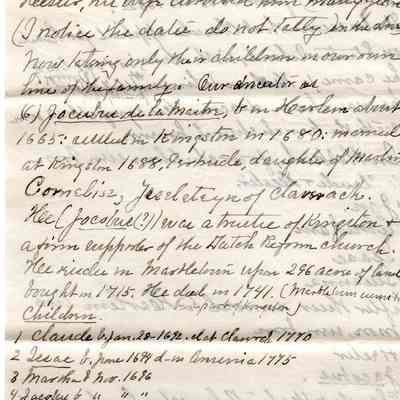 his wife survived him many years
(I notice the dates do not tally) in the
Now taking only their children in our own
line of the family. Our ancestor as
(6) Jacobus de la Mater, b in Harlem about
1665: settled in Kingston in 1680: married
at Kingston 1688, Gertrude, daughter of Martin
Cornelisz, Ysselsteyn of Claverack.
He (Jacobus(?)) was a trustee of Kingston &
a firm supporter of the Dutch Reform church.
He resides in Marbletown upon 296 acres of land
bought in 1715. He died in 1741. (Marbletown
part of Kingston)
Children.
1 Claude b Jan. 28-1692. d at Claverck 1770
2 Isaac b. June 1694 d-in Amenia 1775
3 Martha b Nov. 1696
4 Jacobus b " " "